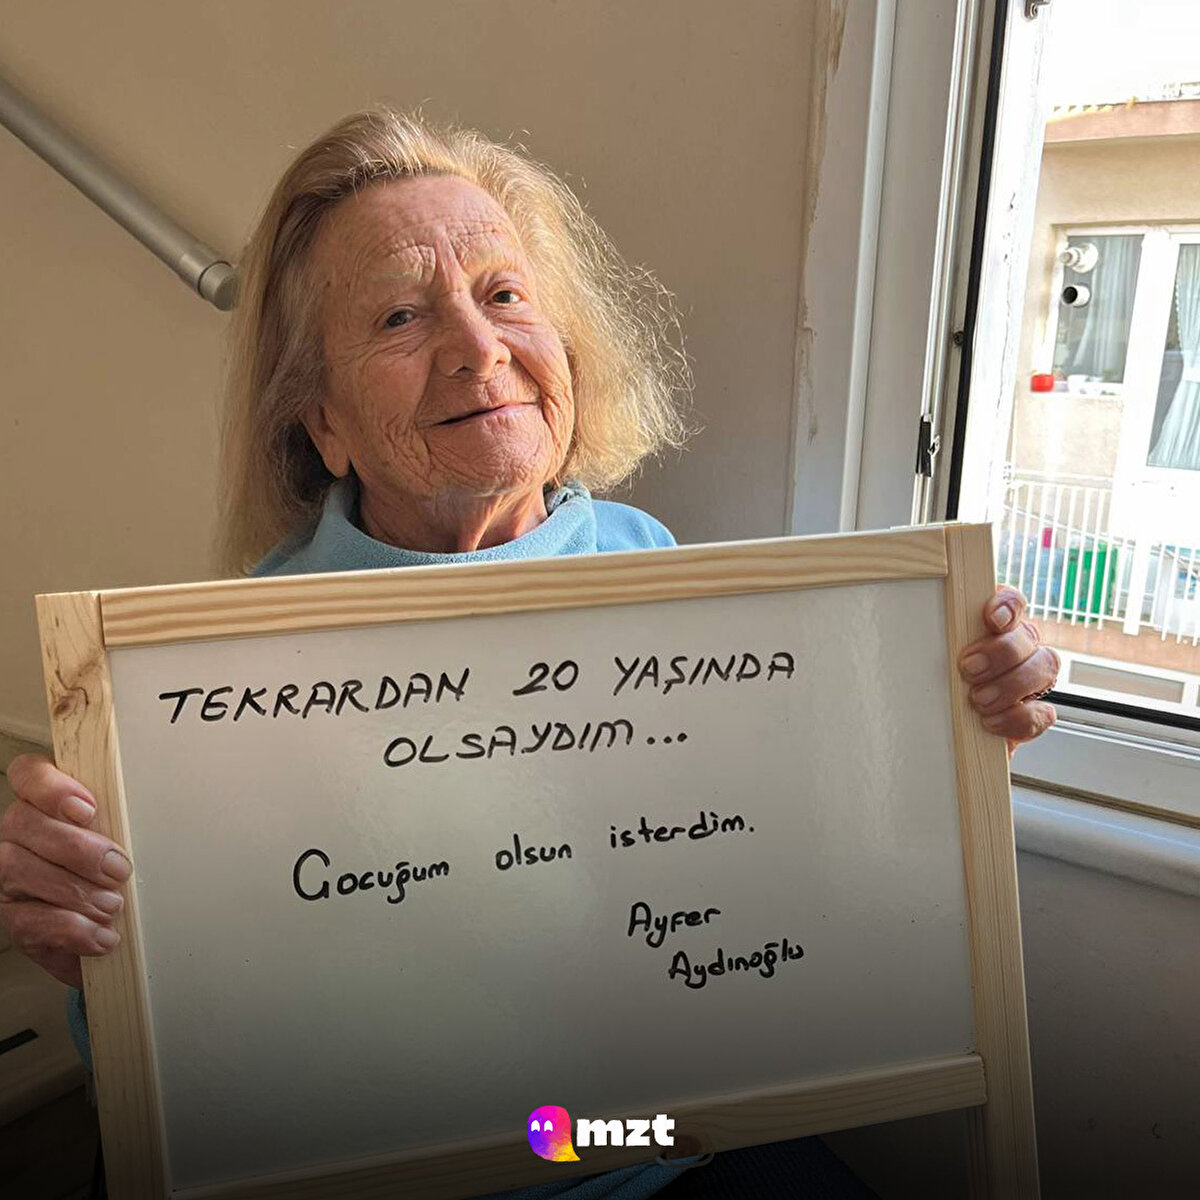 TEKRARDAN 20 YAŞINDA
OLSAYDIM...
Çocuğum olsun isterdim.
Ayfer
Aydınoğlu
mzt